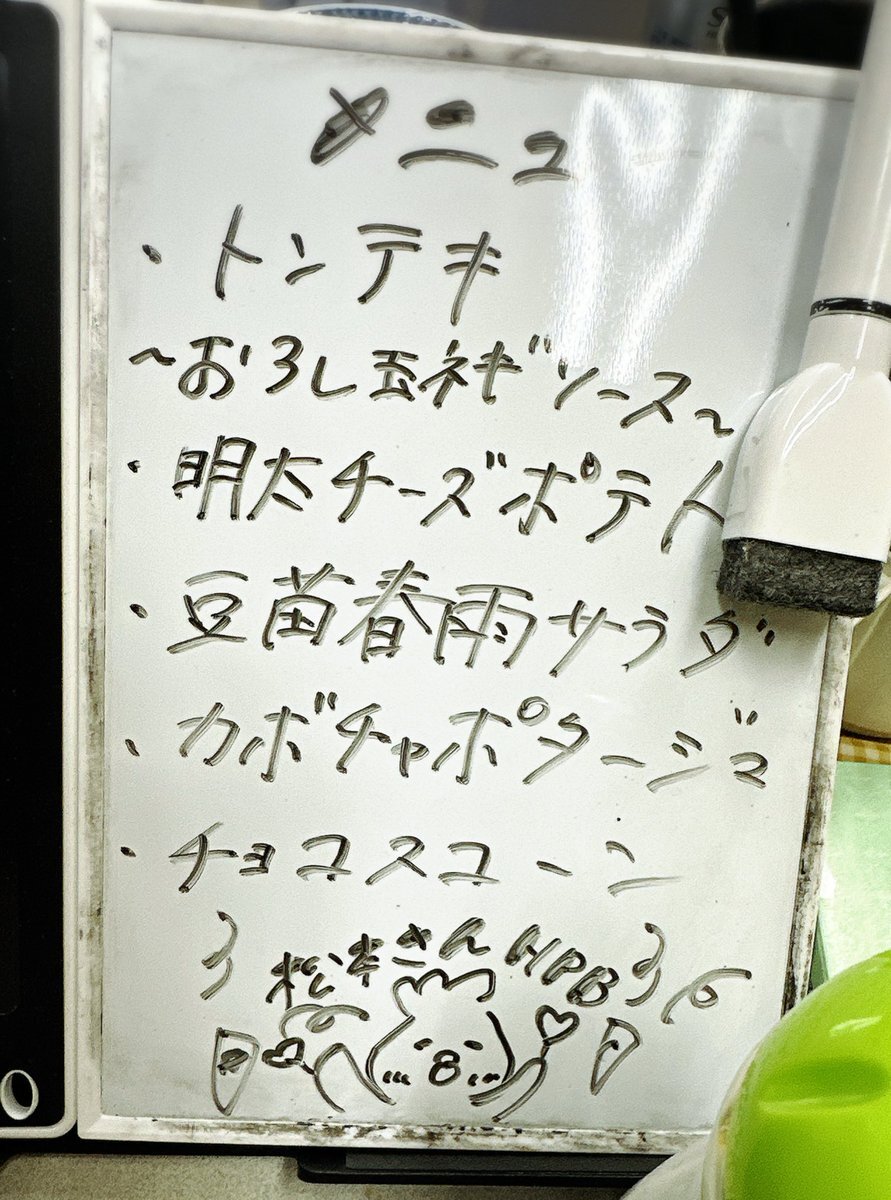 メニュー
・トンテキ
~おろし玉ネギソース~
・明太チーズポテト
・豆苗春雨サラダ
・カボチャポタージュ
・チョコスコーン
松本さんHPB